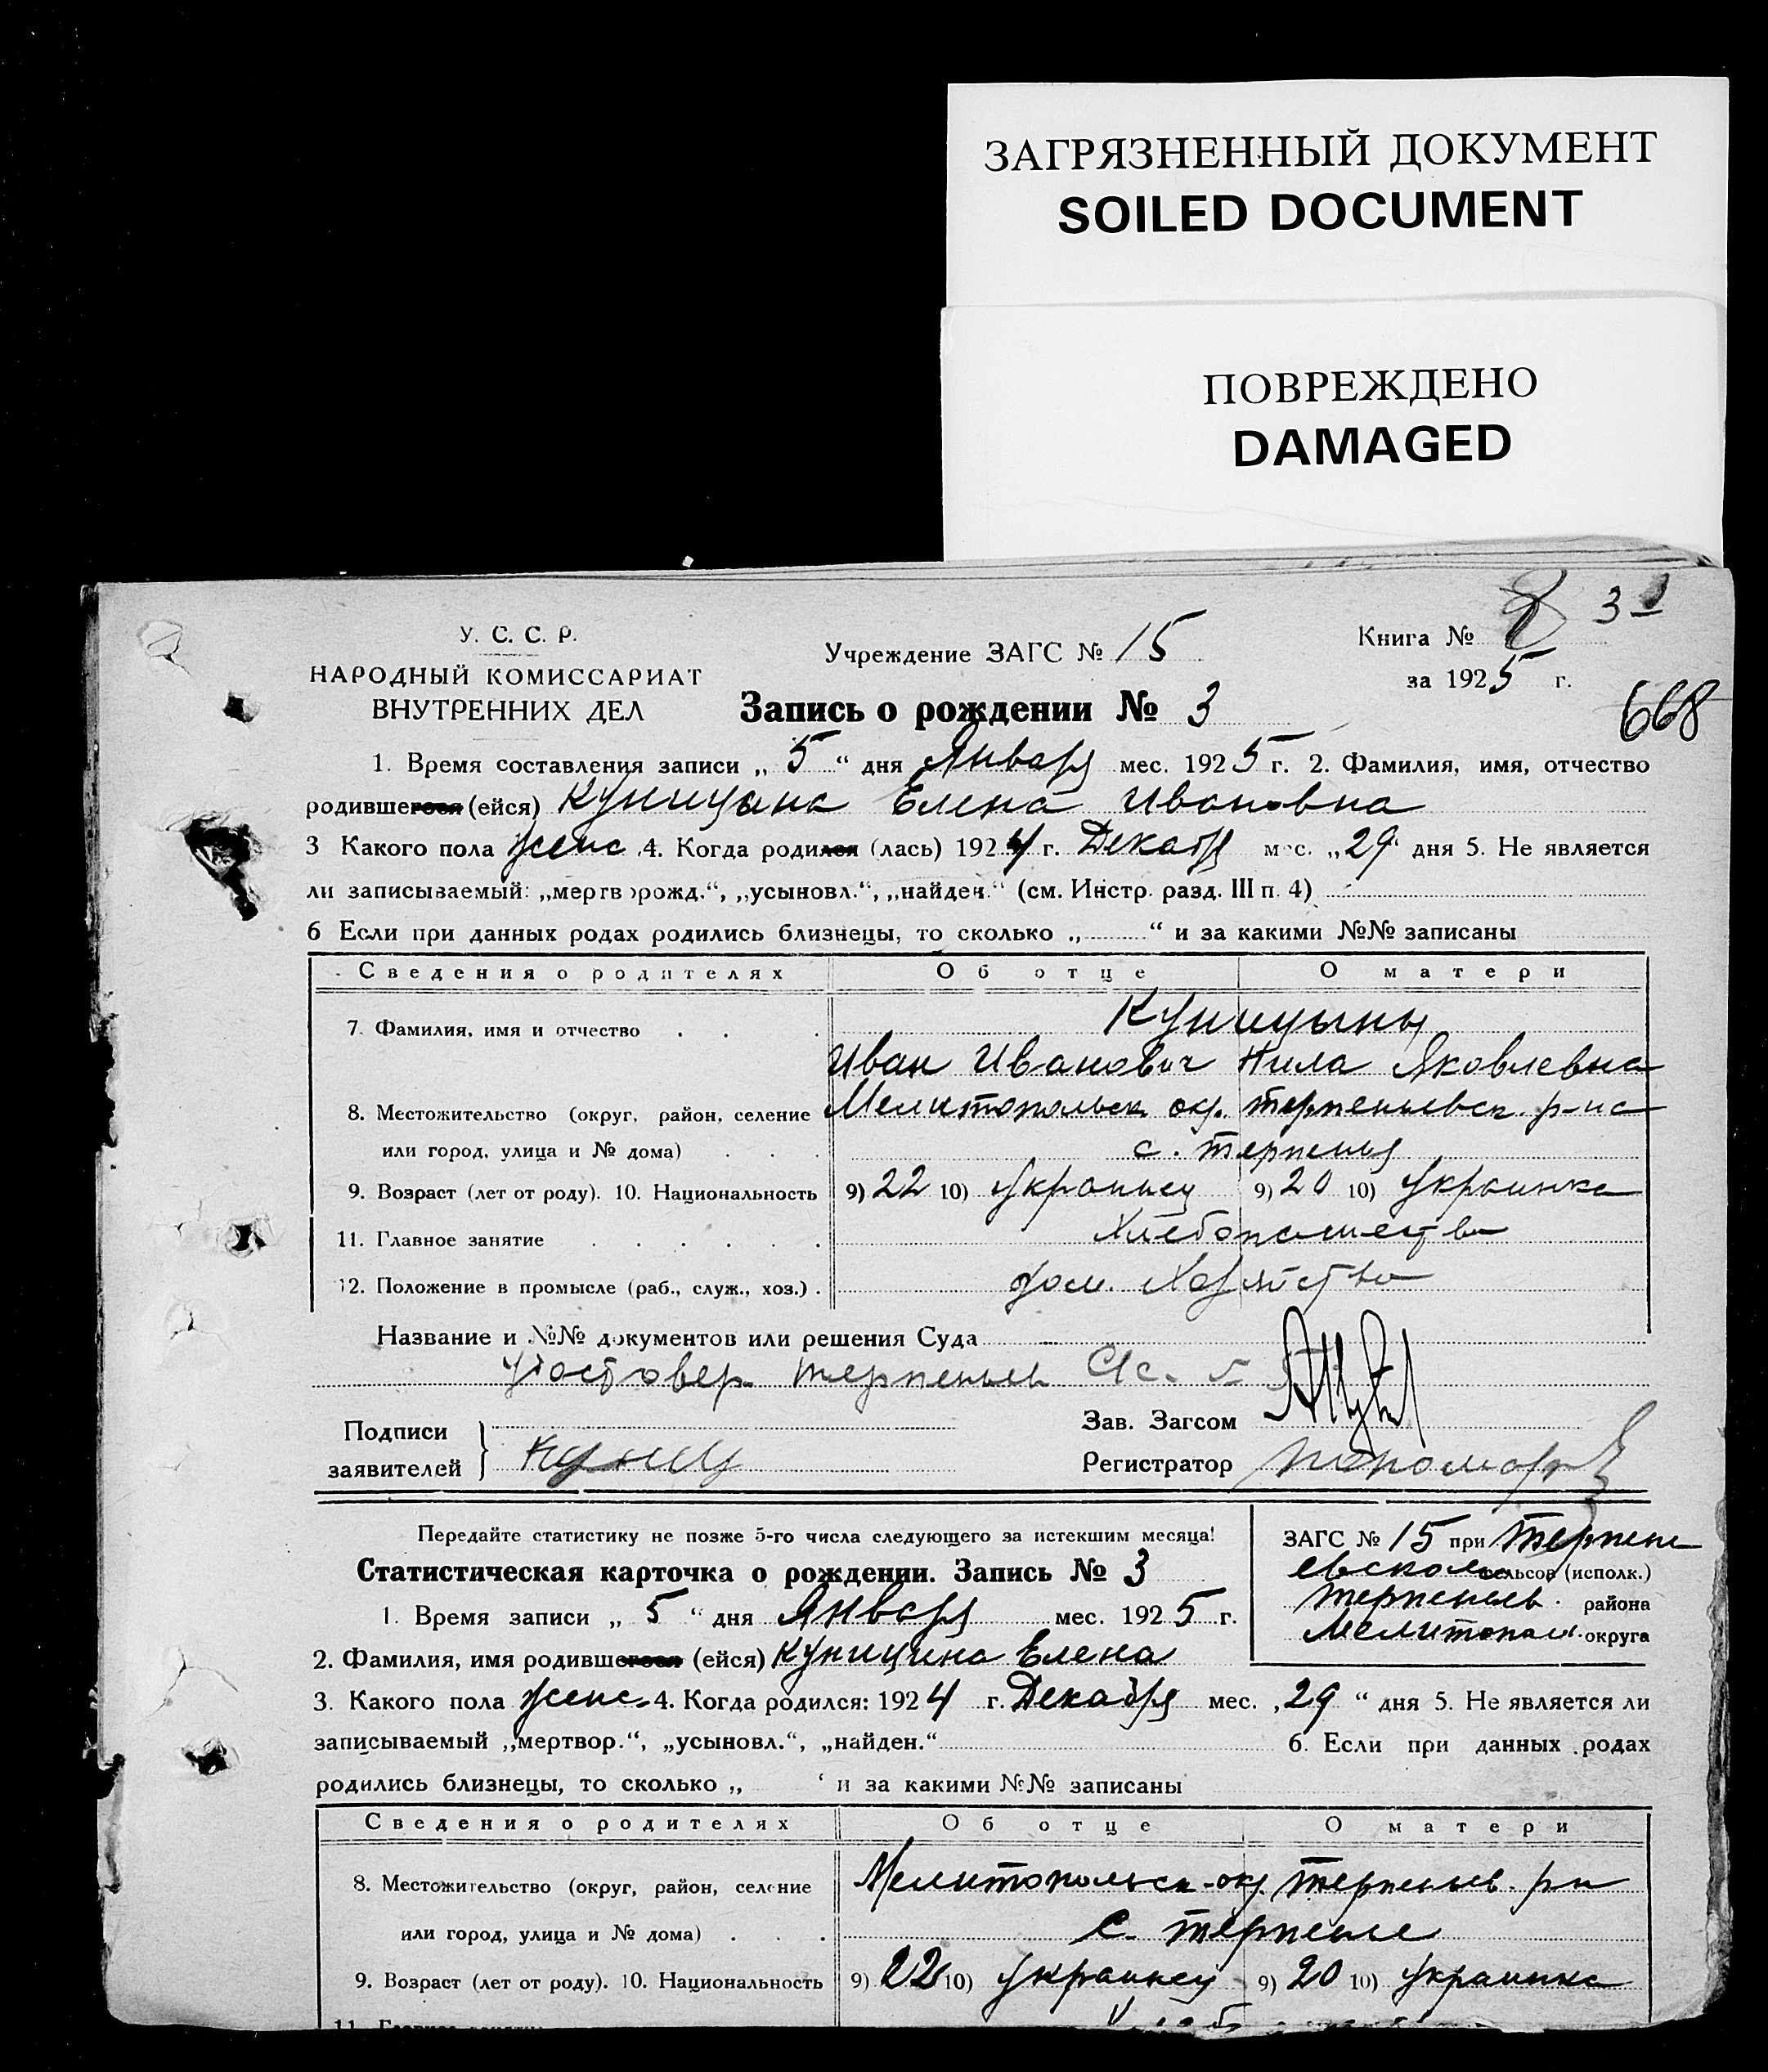 ЗАГРЯЗНЕННЫЙ ДОКУМЕНТ
SOILED DOCUMENT
ПОВРЕЖДЕНО
DAMAGED
3
У. С. С. Р.
НАРОДНЫЙ КОМИССАРИАТ
ВНУТРЕННИХ ДЕЛ
Учреждение ЗАГС № 15
Книга №
за 1925 г.
668
Запись о рождении № 3
1. Время составления записи „ 5 “ дня Января мес. 1925 г. 2. Фамилия, имя, отчество
родившегося (ейся) Куницина Елена Ивановна
3 Какого пола женс 4. Когда родился (лась) 1924 г. Декабр мес. „29“ дня 5. Не является
ли записываемый: „мертворожд.“, „усыновл.“, „найден.“ (см. Инстр. разд. III п. 4)
6 Если при данных родах родились близнецы, то сколько „ “ и за какими №№ записаны
Сведения о родителях Об отце О матери
7. Фамилия, имя и отчество Куницыны
Иван Иванович Нила Яковлевна
8. Местожительство (округ, район, селение Мелитопольск окр. Терпеньевск р-на
или город, улица и № дома) с. Терпенья
9. Возраст (лет от роду). 10. Национальность 9) 22 10) Украинец 9) 20 10) Украинка
11. Главное занятие Хлебопашество
12. Положение в промысле (раб., служ., хоз.) дом. Хозяйство
Название и №№ документов или решения Суда
Удостовер. Терпеньев С/с.
Подписи
заявителей Куниц
Зав. Загсом
Регистратор Пономар
Передайте статистику не позже 5-го числа следующего за истекшим месяца!
Статистическая карточка о рождении. Запись № 3
ЗАГС № 15 при Терпень
евском сельсов (исполк.)
Терпеньев. района
Мелитопол. округа
1. Время записи „ 5 “ дня Января мес. 1925 г.
2. Фамилия, имя родившегося (ейся) Куницина Елена
3. Какого пола женс. 4. Когда родился: 1924 г. Декабря мес. „29“ дня 5. Не является ли
записываемый „мертвор.“, „усыновл.“, „найден.“ 6. Если при данных родах
родились близнецы, то сколько „ “ и за какими №№ записаны
Сведения о родителях Об отце О матери
8. Местожительство (округ, район, селение Мелитопольск. окр. Терпеньев. р-н
или город, улица и № дома) с. Терпенье
9. Возраст (лет от роду). 10. Национальность 9) 22 10) Украинец 9) 20 10) Украинка